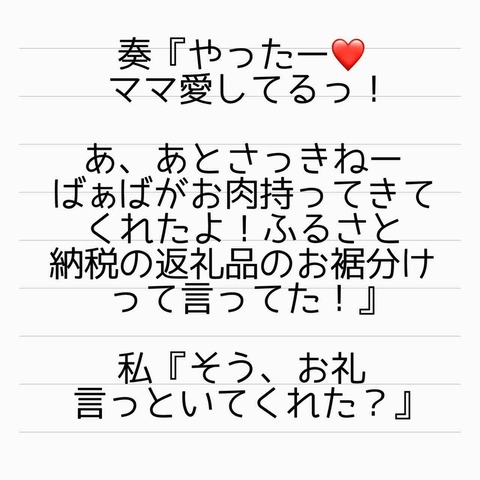 奏『やったー❤️
ママ愛してるっ！
あ、あとさっきねー
ばぁばがお肉持ってきて
くれたよ！ふるさと
納税の返礼品のお裾分け
って言ってた！』
私『そう、お礼
言っといてくれた？』